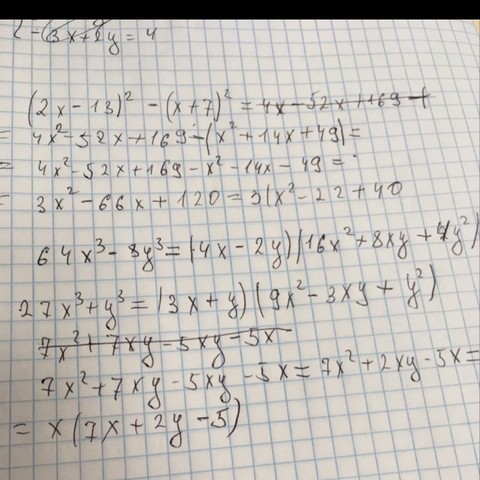 3x+2y = 4
(2x-13)² - (x+7)² = 4x-52x+169-(
= 4x²-52x+169-(x²+14x+49)=
= 4x²-52x+169-x²-14x-49=
= 3x²-66x+120=3(x²-22+40
64x³-8y³=(4x-2y)(16x²+8xy+4y²)
27x³+y³=(3x+y)(9x²-3xy+y²)
7x²+7xy-5xy-5x
7x²+7xy-5xy-5x=7x²+2xy-5x=
= x(7x+2y-5)